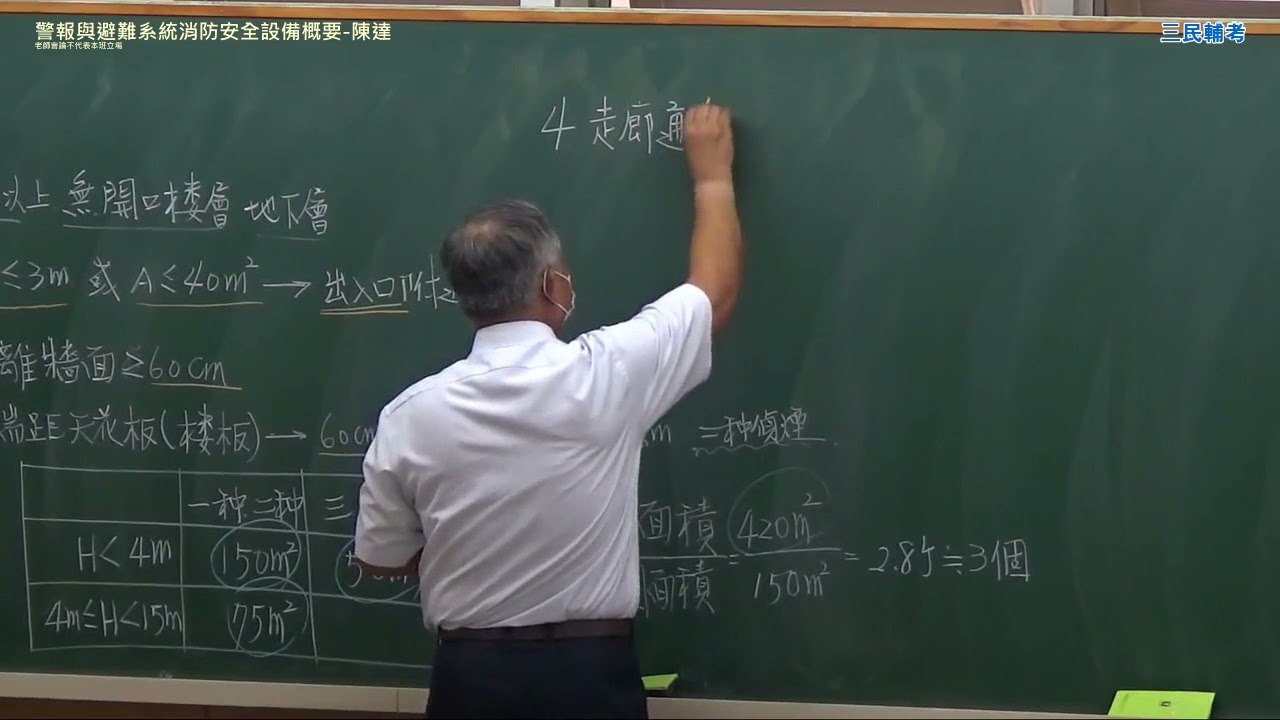 警報與避難系統消防安全設備概要-陳達
老師言論不代表本班立場
三民輔考
4 走廊通
以上 無開口楼層 地下層
≤3m 或 A≤40m² → 出入口附近
離牆面≥60cm
端距天花板(楼板) → 60cm
m 三种偵煙
一种二种 三
H<4m 150m²
4m≤H<15m 75m²
面積 = 420m² = 2.8个≒3個
面積 150m²